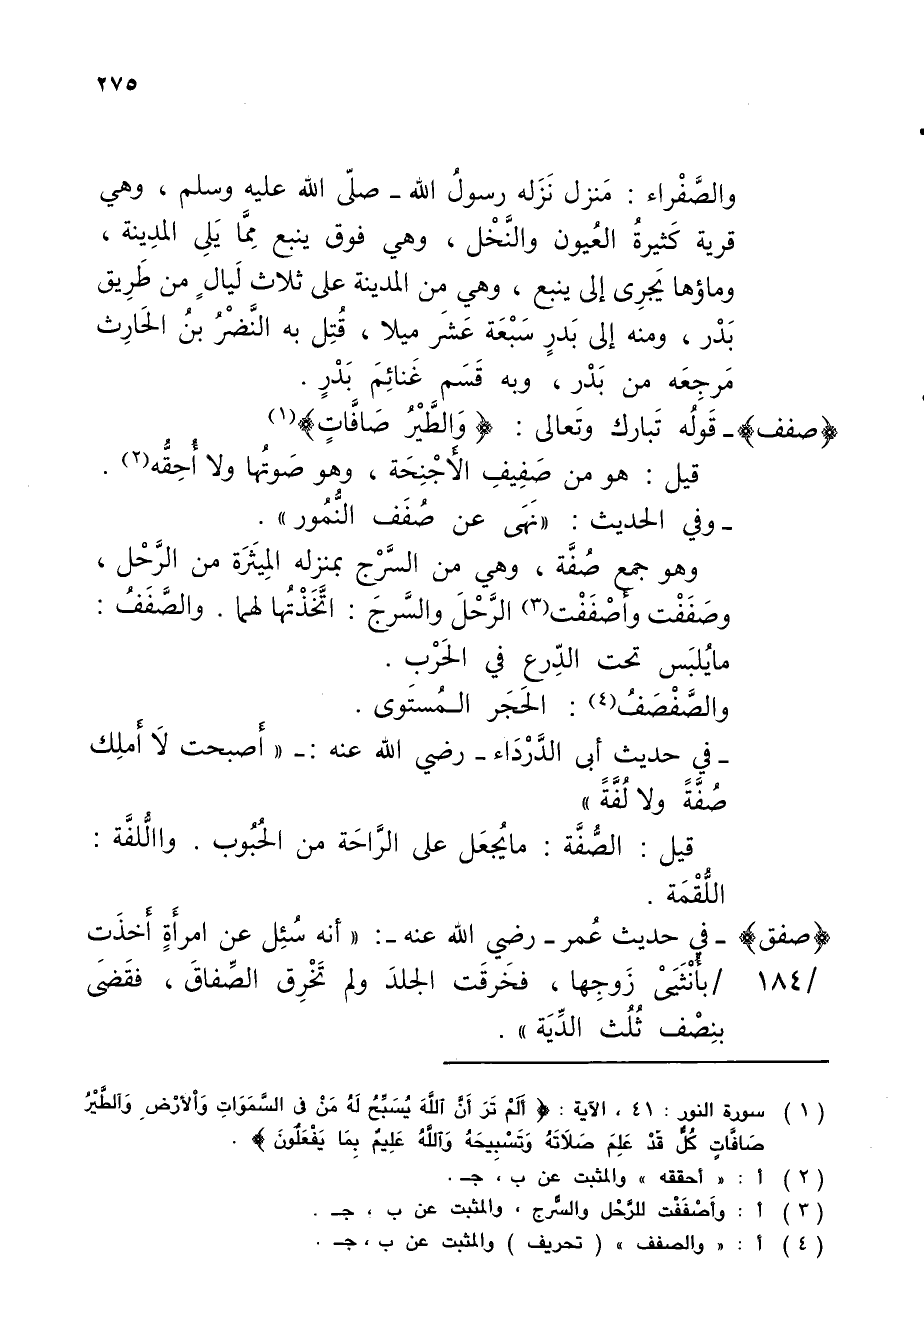 ٢٧٥
والصَّفْراء : مَنزل نَزَله رسولُ الله ـ صلّى الله عليه وسلم ، وهي
قرية كَثيرةُ العُيون والنَّخْل ، وهي فوق ينبع مِمَّا يَلِي المدِينة ،
وماؤها يَجرِى إلى ينبع ، وهي من المدينة على ثلاث لَيالٍ من طَرِيق
بَدْر ، ومنه إلى بَدرٍ سَبْعَة عَشَر ميلا ، قُتِل به النَّضْرُ بنُ الحَارِث
مَرجِعَه من بَدْر ، وبه قَسَم غَنائِمَ بَدْرٍ .
﴿صفف﴾ـ قَولُه تَبارك وتَعالى : ﴿ وَالطَّيْرُ صَافَّاتٍ﴾(١)
قيل : هو من صَفِيفِ الأَجْنِحَة ، وهو صَوتُها ولا أُحِقُّه(٢) .
ـ وفي الحديث : «نَهَى عن صُفَف النُّمُور» .
وهو جمع صُفَّة ، وهي من السَّرْج بمنزله المِيثَرَة من الرَّحْل ،
وصَفَفْت وأَصْفَفْت(٣) الرَّحْلَ والسَّرجَ : اتَّخَذْتُها لهما . والصَّفَفُ :
مايُلبَس تحت الدِّرع في الحَرْب .
والصَّفْصَفُ(٤) : الحَجَر المُستَوى .
ـ في حديث أبى الدَّرْدَاء ـ رضي الله عنه :ـ « أَصبحت لَا أَملِك
صُفَّةً ولا لُفَّةً »
قيل : الصُّفَّة : مايُجعَل على الرَّاحَة من الحُبُوب . واالُّلفَّة :
اللُّقْمَة .
﴿صفق﴾ ـ في حديث عُمر ـ رضي الله عنه ـ: « أنه سُئِل عن امرأَةٍ أَخذَت
/١٨٤ /بأُنْثَيَىْ زَوجِها ، فخَرقَت الجلدَ ولم تَخْرِق الصِّفاقَ ، فقَضىَ
بنِصْف ثُلُث الدِّيَة » .
(١) سورة النور : ٤١ ، الآية : ﴿ أَلَمْ تَرَ أَنَّ ٱللَّهَ يُسَبِّحُ لَهُ مَنْ فى السَّمَوَاتِ وَٱلأَرْضِ وَٱلطَّيْرُ
صَافَّاتٍ كُلٌّ قَدْ عَلِمَ صَلَاتَهُ وَتَسْبِيحَهُ وَٱللَّهُ عَلِيمٌ بِمَا يَفْعَلُونَ ﴾ .
(٢) أ : « أحققه » والمثبت عن ب ، جـ .
(٣) أ : وأَصْفَفْت للرَّحْل والسَّرج ، والمثبت عن ب ، جـ .
(٤) أ : « والصفف » ( تحريف ) والمثبت عن ب ، جـ .